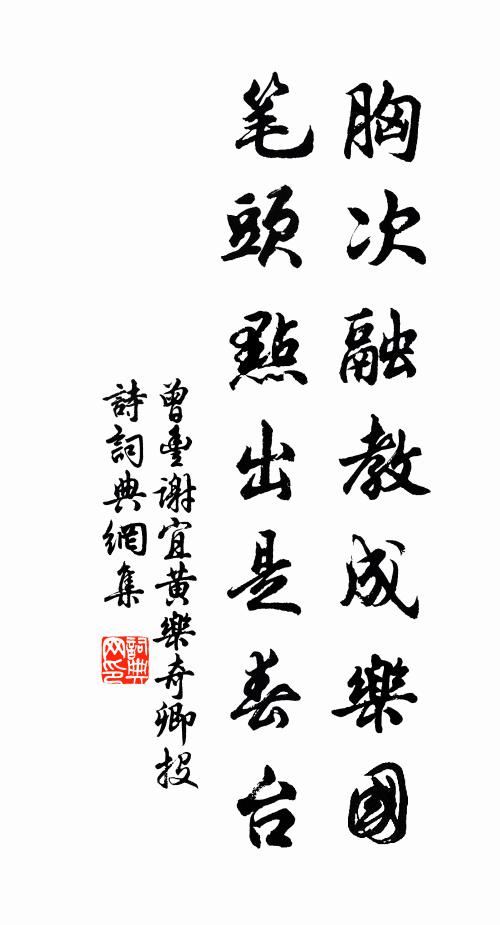 胸次融教成樂國
笔頭點出是春台
曾豊謝宜黄樂奇卿投
詩詞典網集
詞典網印